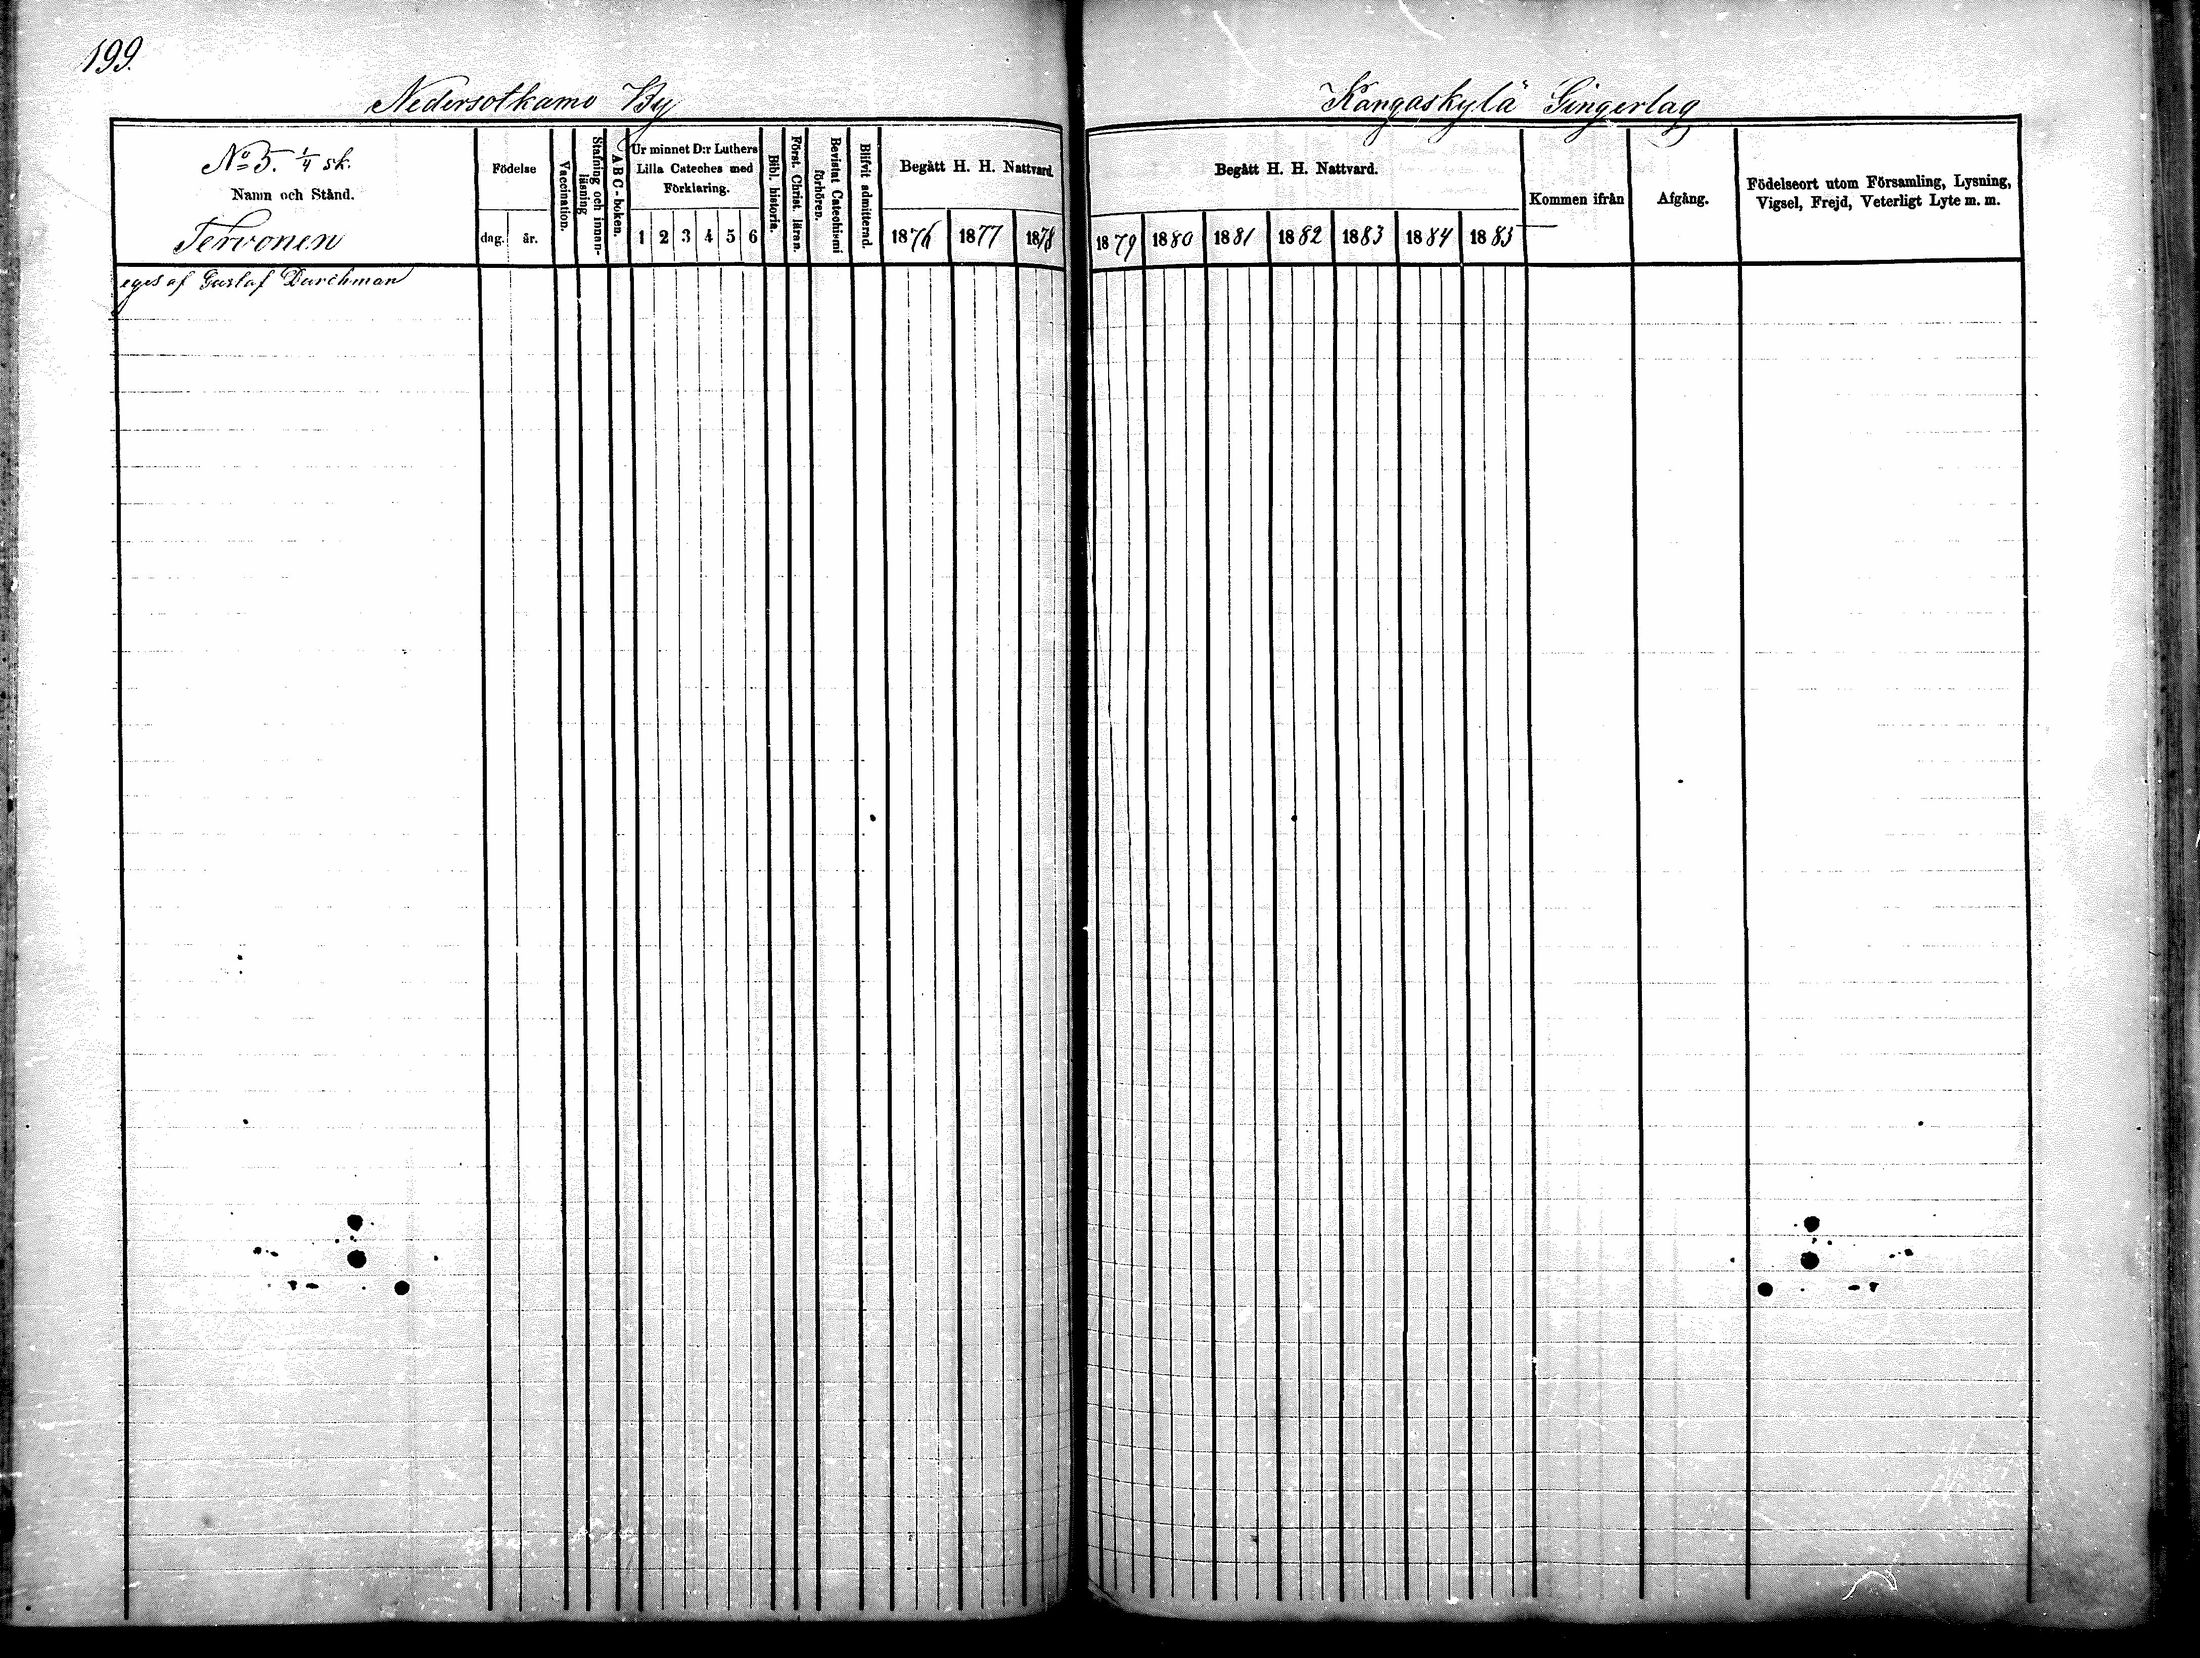 199.
Nedersotkamo By
Kangaskylä Gingerlag
No 5. 1/4 sk.
Namn och Stånd.
Tervonen
Födelse
dag.
år.
Vaccination.
Stafning och innan-
läsning
ABC-boken.
Ur minnet D:r Luthers
Lilla Cateches med
Förklaring.
1 2 3 4 5 6
Bibl. historia.
Först. Christ. läran.
Bevistat Catechismi
förhören.
Blifvit admitterad.
Begått H. H. Nattvard.
1876 1877 1878
Begått H. H. Nattvard.
1879 1880 1881 1882 1883 1884 1885
Kommen ifrån
Afgång.
Födelseort utom Församling, Lysning,
Vigsel, Frejd, Veterligt Lyte m. m.
eges af Gustaf Durchman